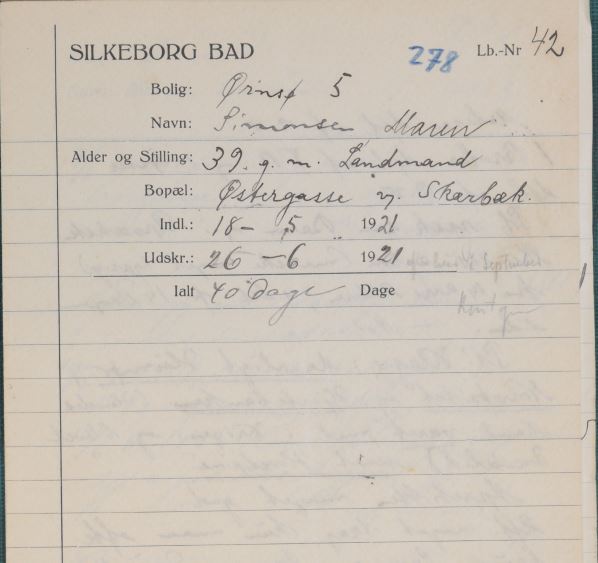 SILKEBORG BAD 278 Lb.-Nr 42
Bolig: Ørnsø 5
Navn: Simonsen Maren
Alder og Stilling: 39. g. m. Landmand
Bopæl: Østergasse v. Skærbæk.
Indl.: 18 - 5 1921
Udskr.: 26 - 6 1921
September
Ialt 40 Dage Dage